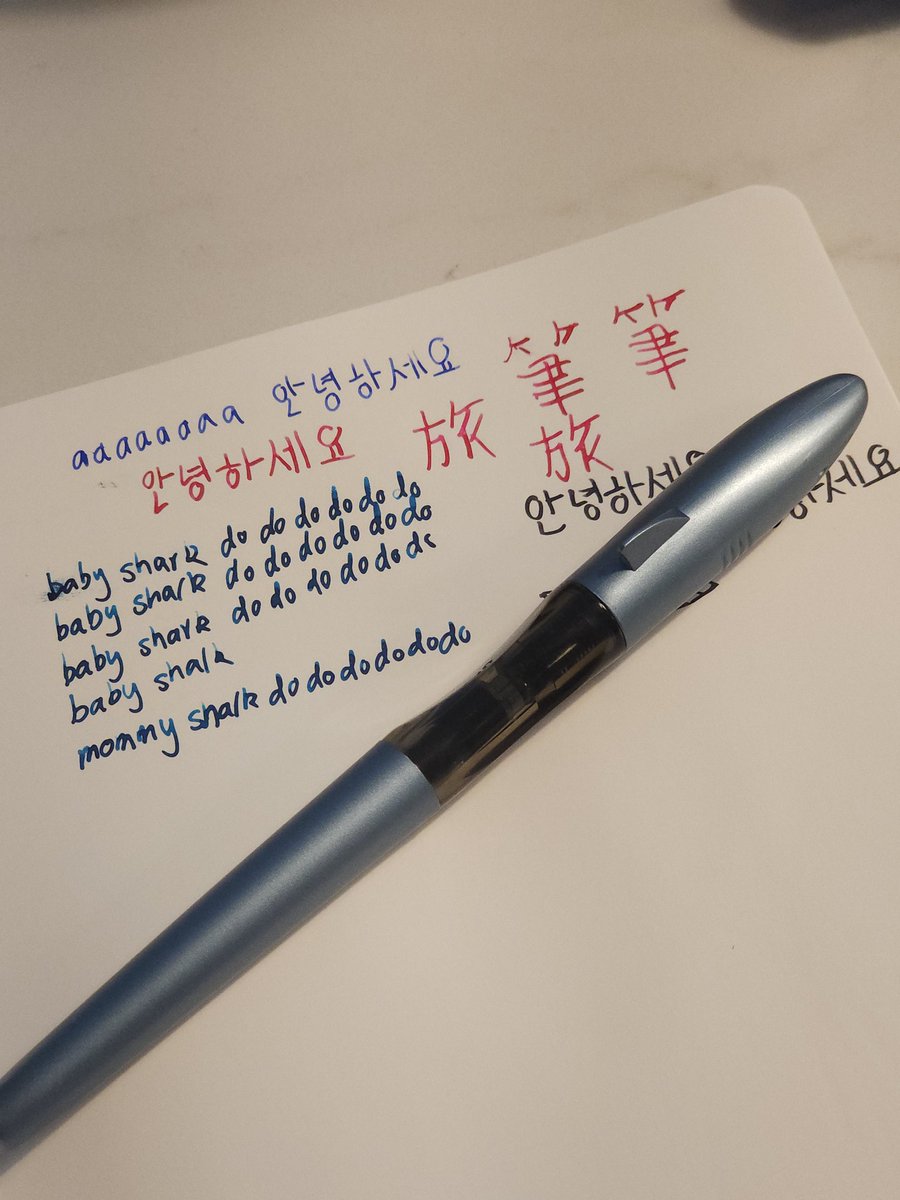 aaaaaaaa 안녕하세요
筆 筆
안녕하세요 旅 旅
안녕하세
하세요
baby shark do do do do do do
baby shark do do do do do do
baby shark do do do do do dc
baby shalk
mommy shalk do do do do do do